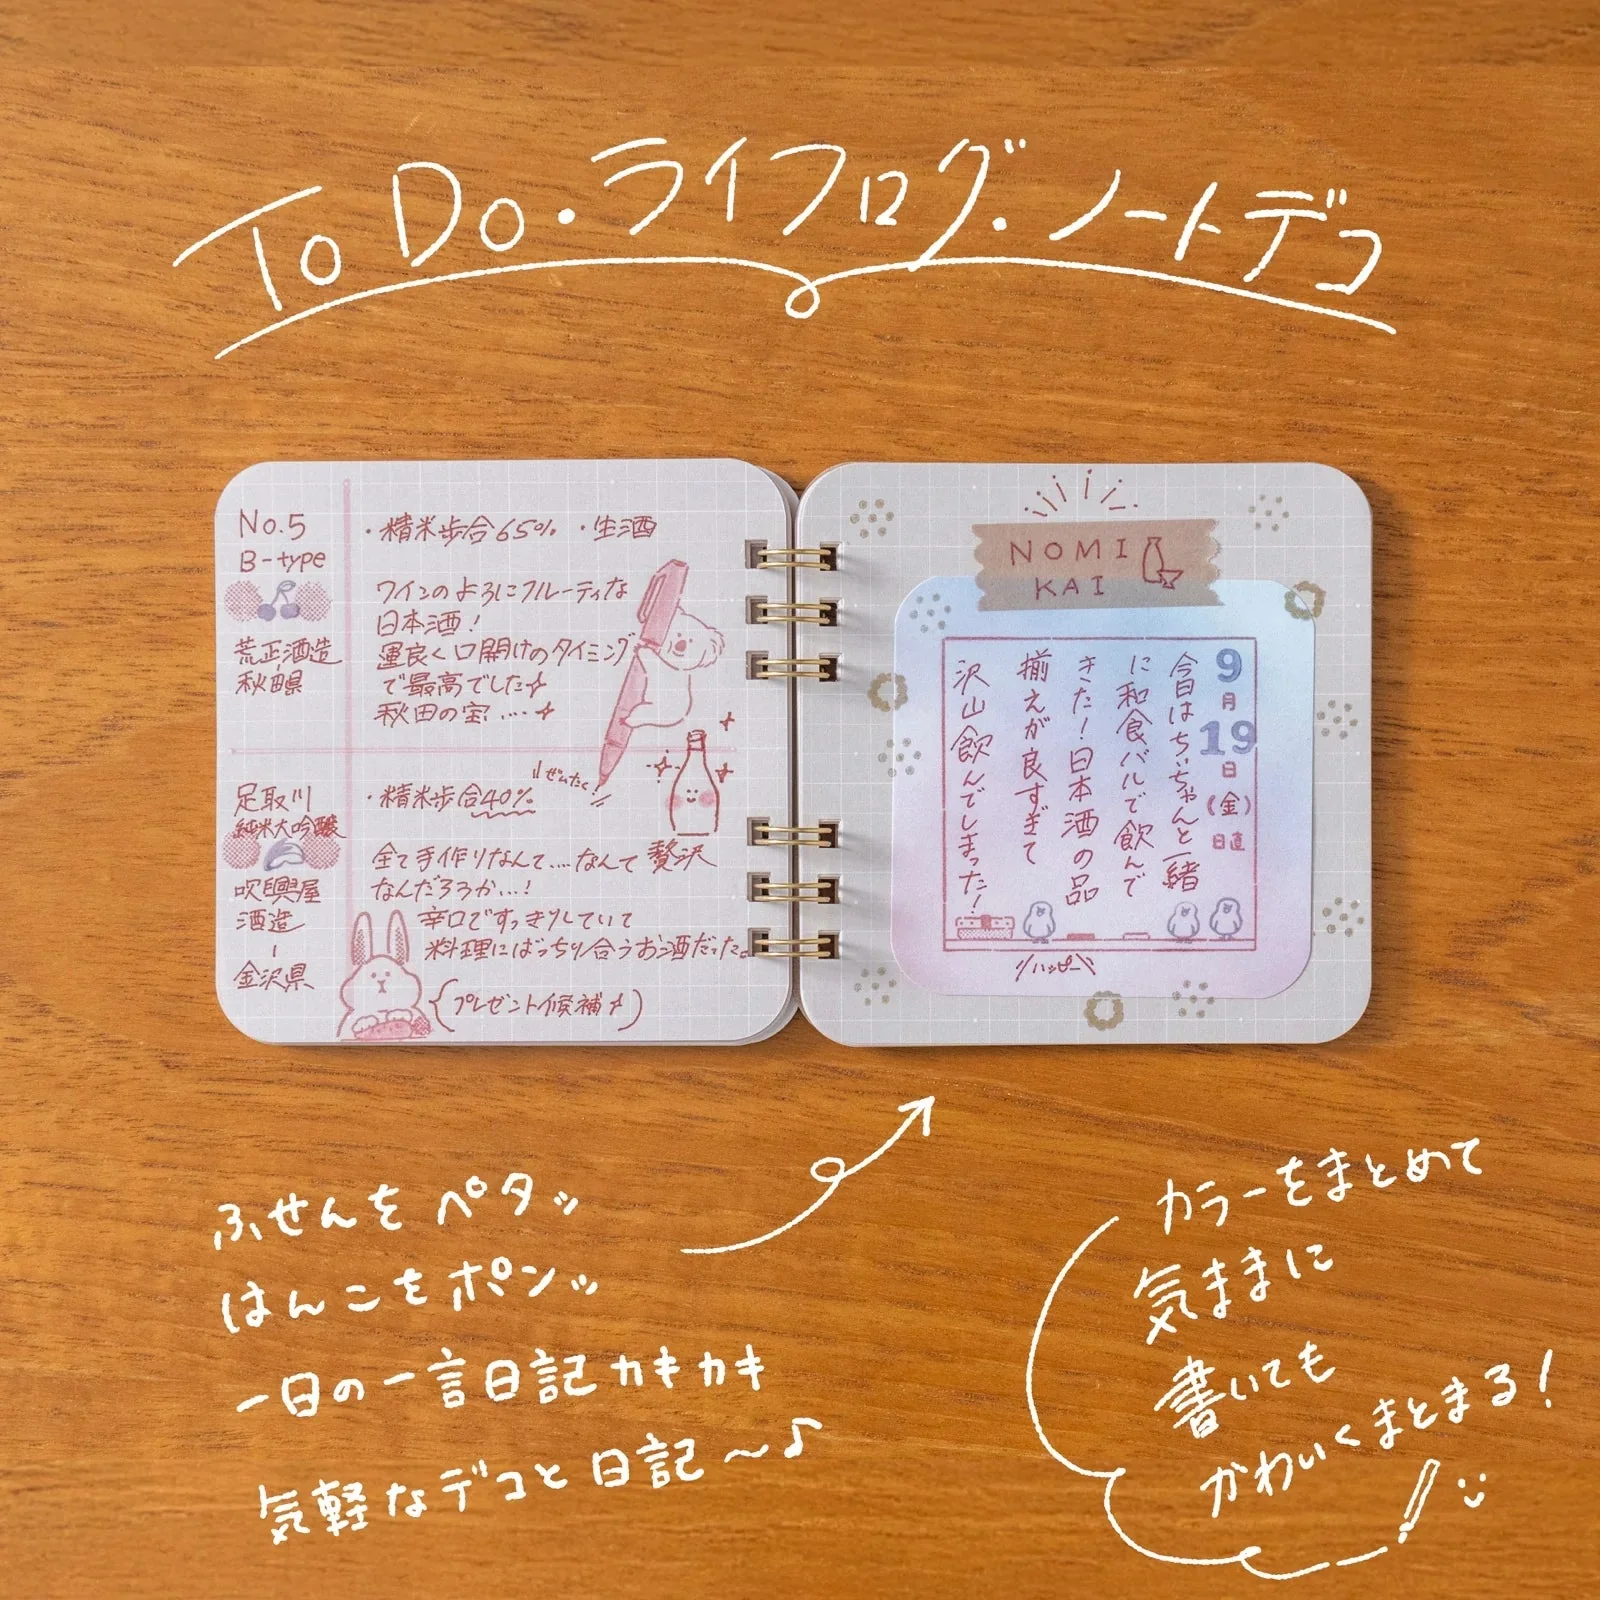 To Do・ライフログ・ノートデコ
No.5
B-type
荒正酒造
秋田県
・精米歩合65% ・生酒
ワインのように フルーティな
日本酒!
運良く口開けのタイミング
で最高でした
秋田の宝....
足取川
純米大吟醸
吹興屋
酒造
金沢県
・精米歩合40%
ぜいたく!
全て手作りなんて....なんて贅沢
なんだろうか...!
辛口ですっきりしていて
料理にばっちり合うお酒だった。
(プレゼント候補)
NOMI
KAI
9
月
19
日
(金)
日直
今日はちぃちゃんと一緒
に和食バルで飲んで
きた!日本酒の品
揃えが良すぎて
沢山飲んでしまった!
ハッピー
ふせんをペタッ
はんこをポンッ
一日の一言日記カキカキ
気軽なデコと日記〜♪
カラーをまとめて
気ままに
書いても
かわいくまとまる!